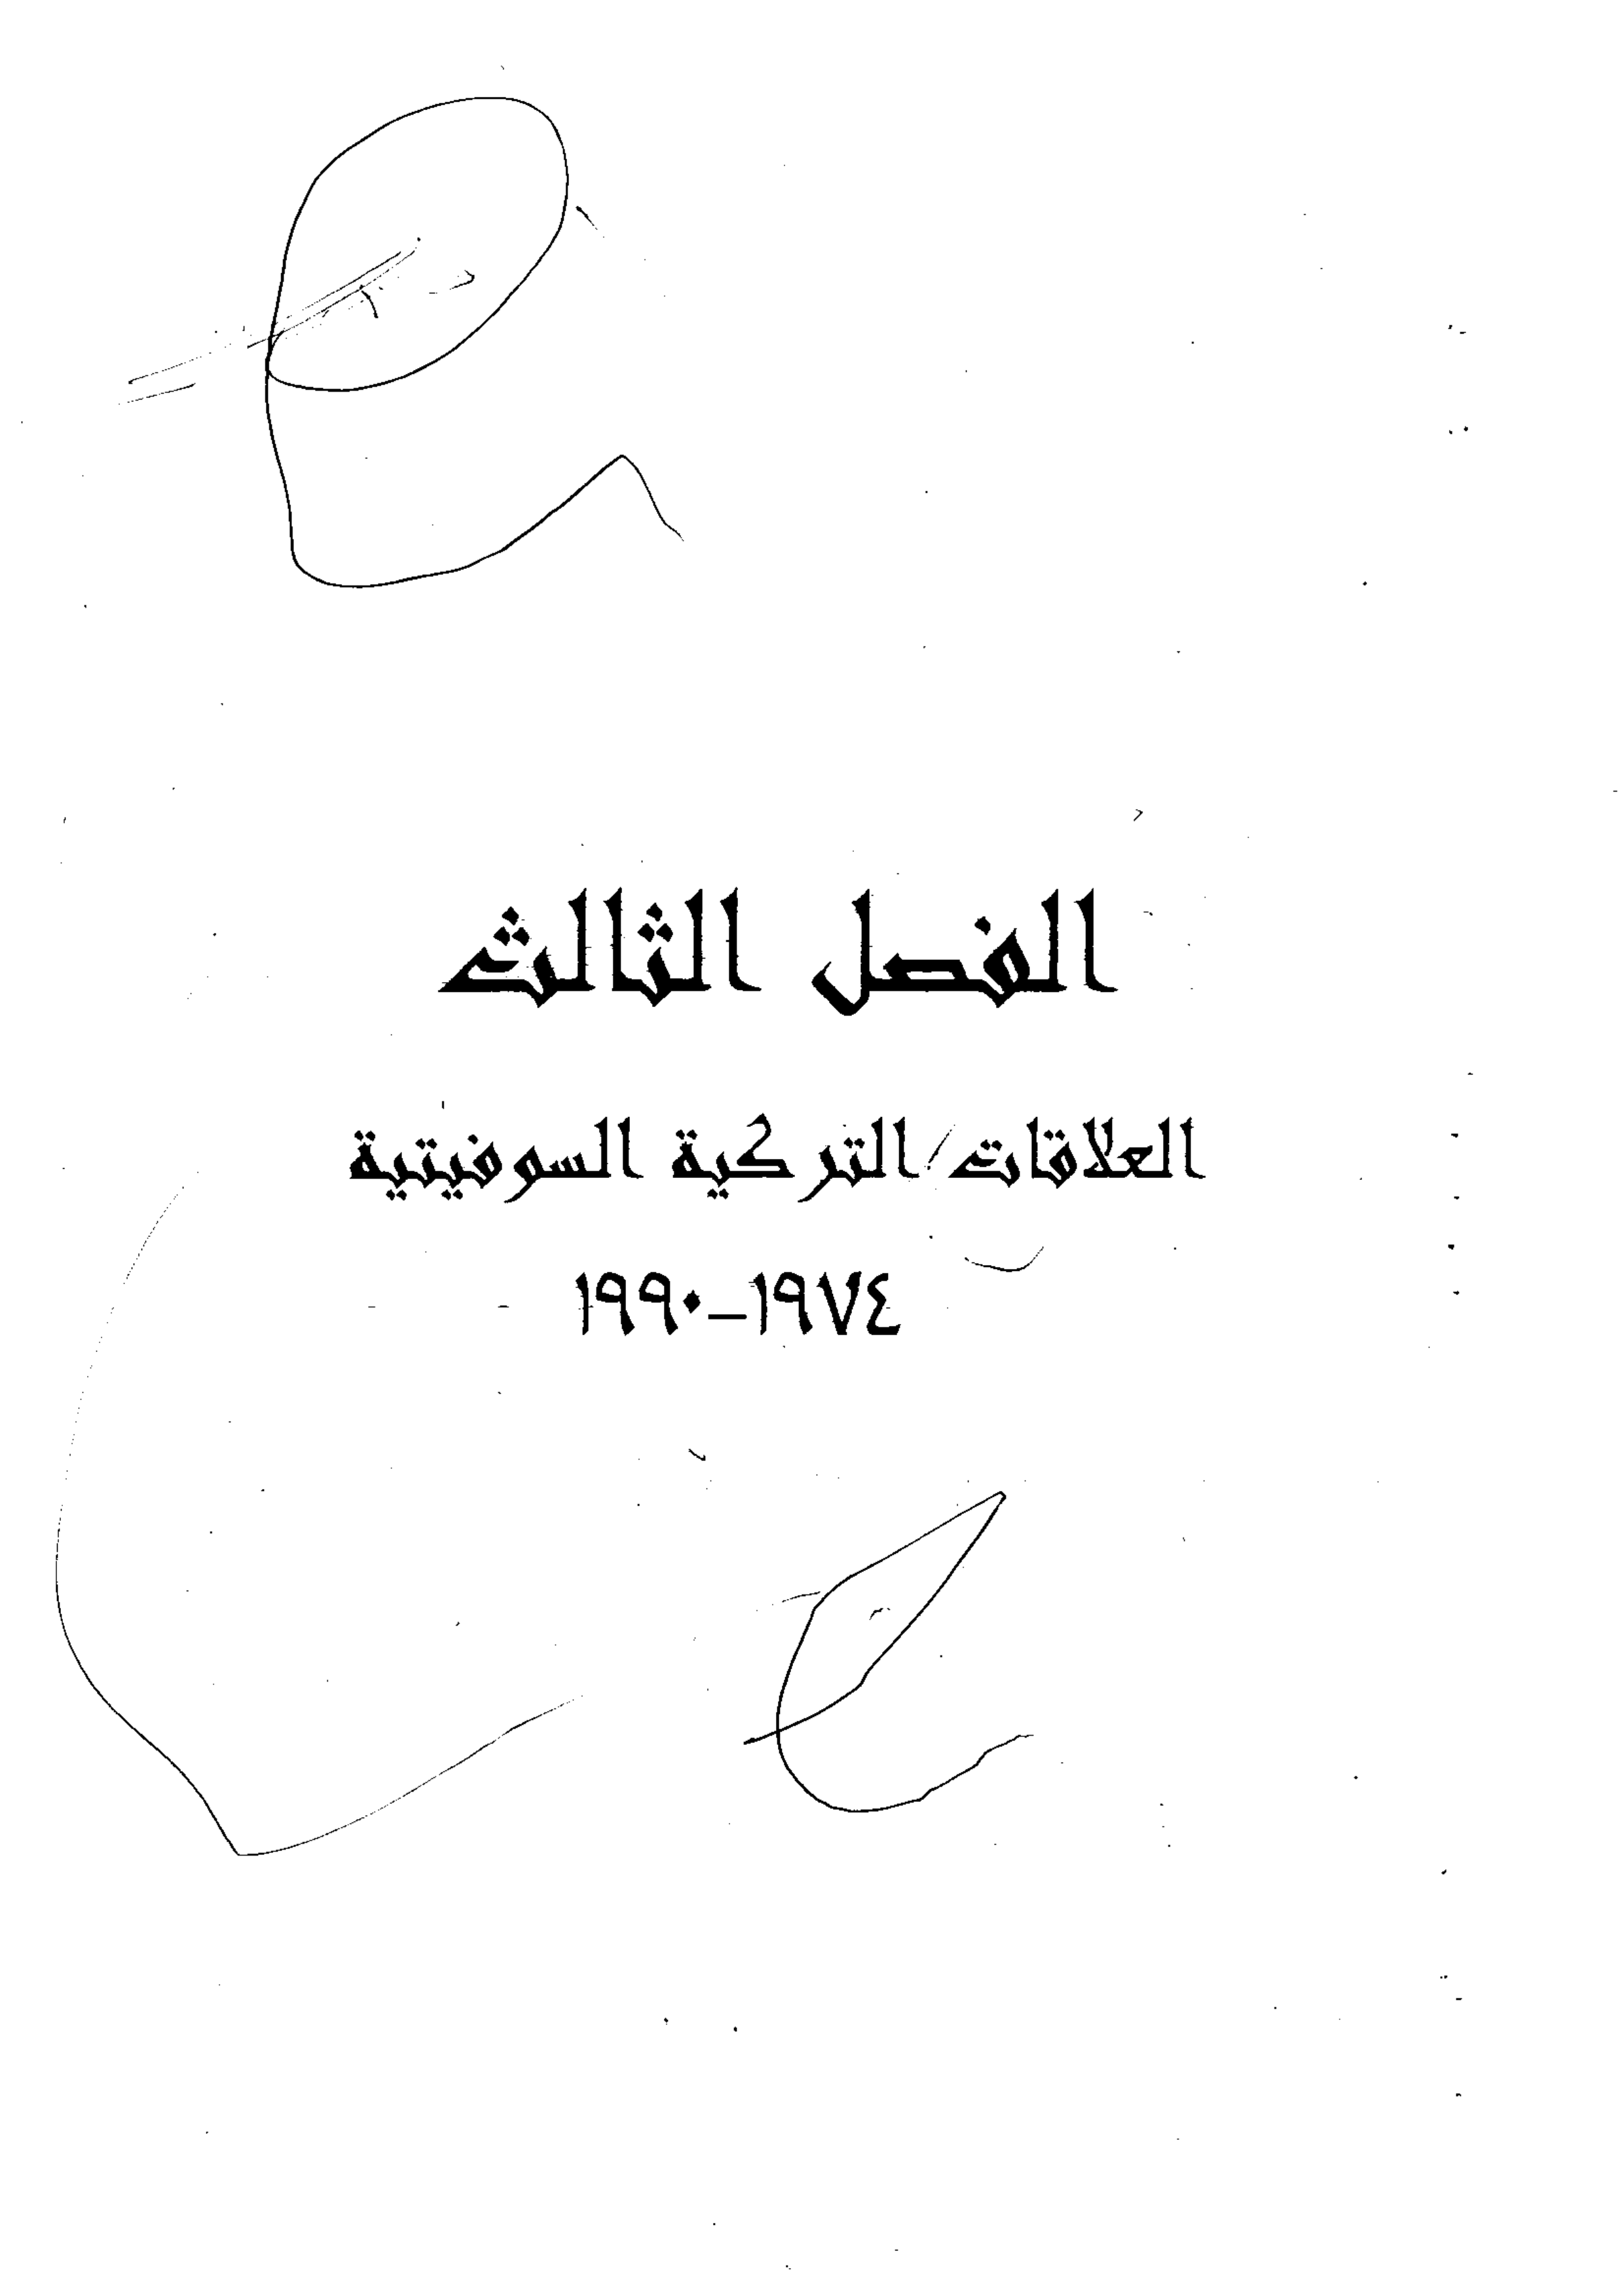 الفصل الثالث
العلاقات التركية السوفيتية
١٩٧٤-١٩٩٠